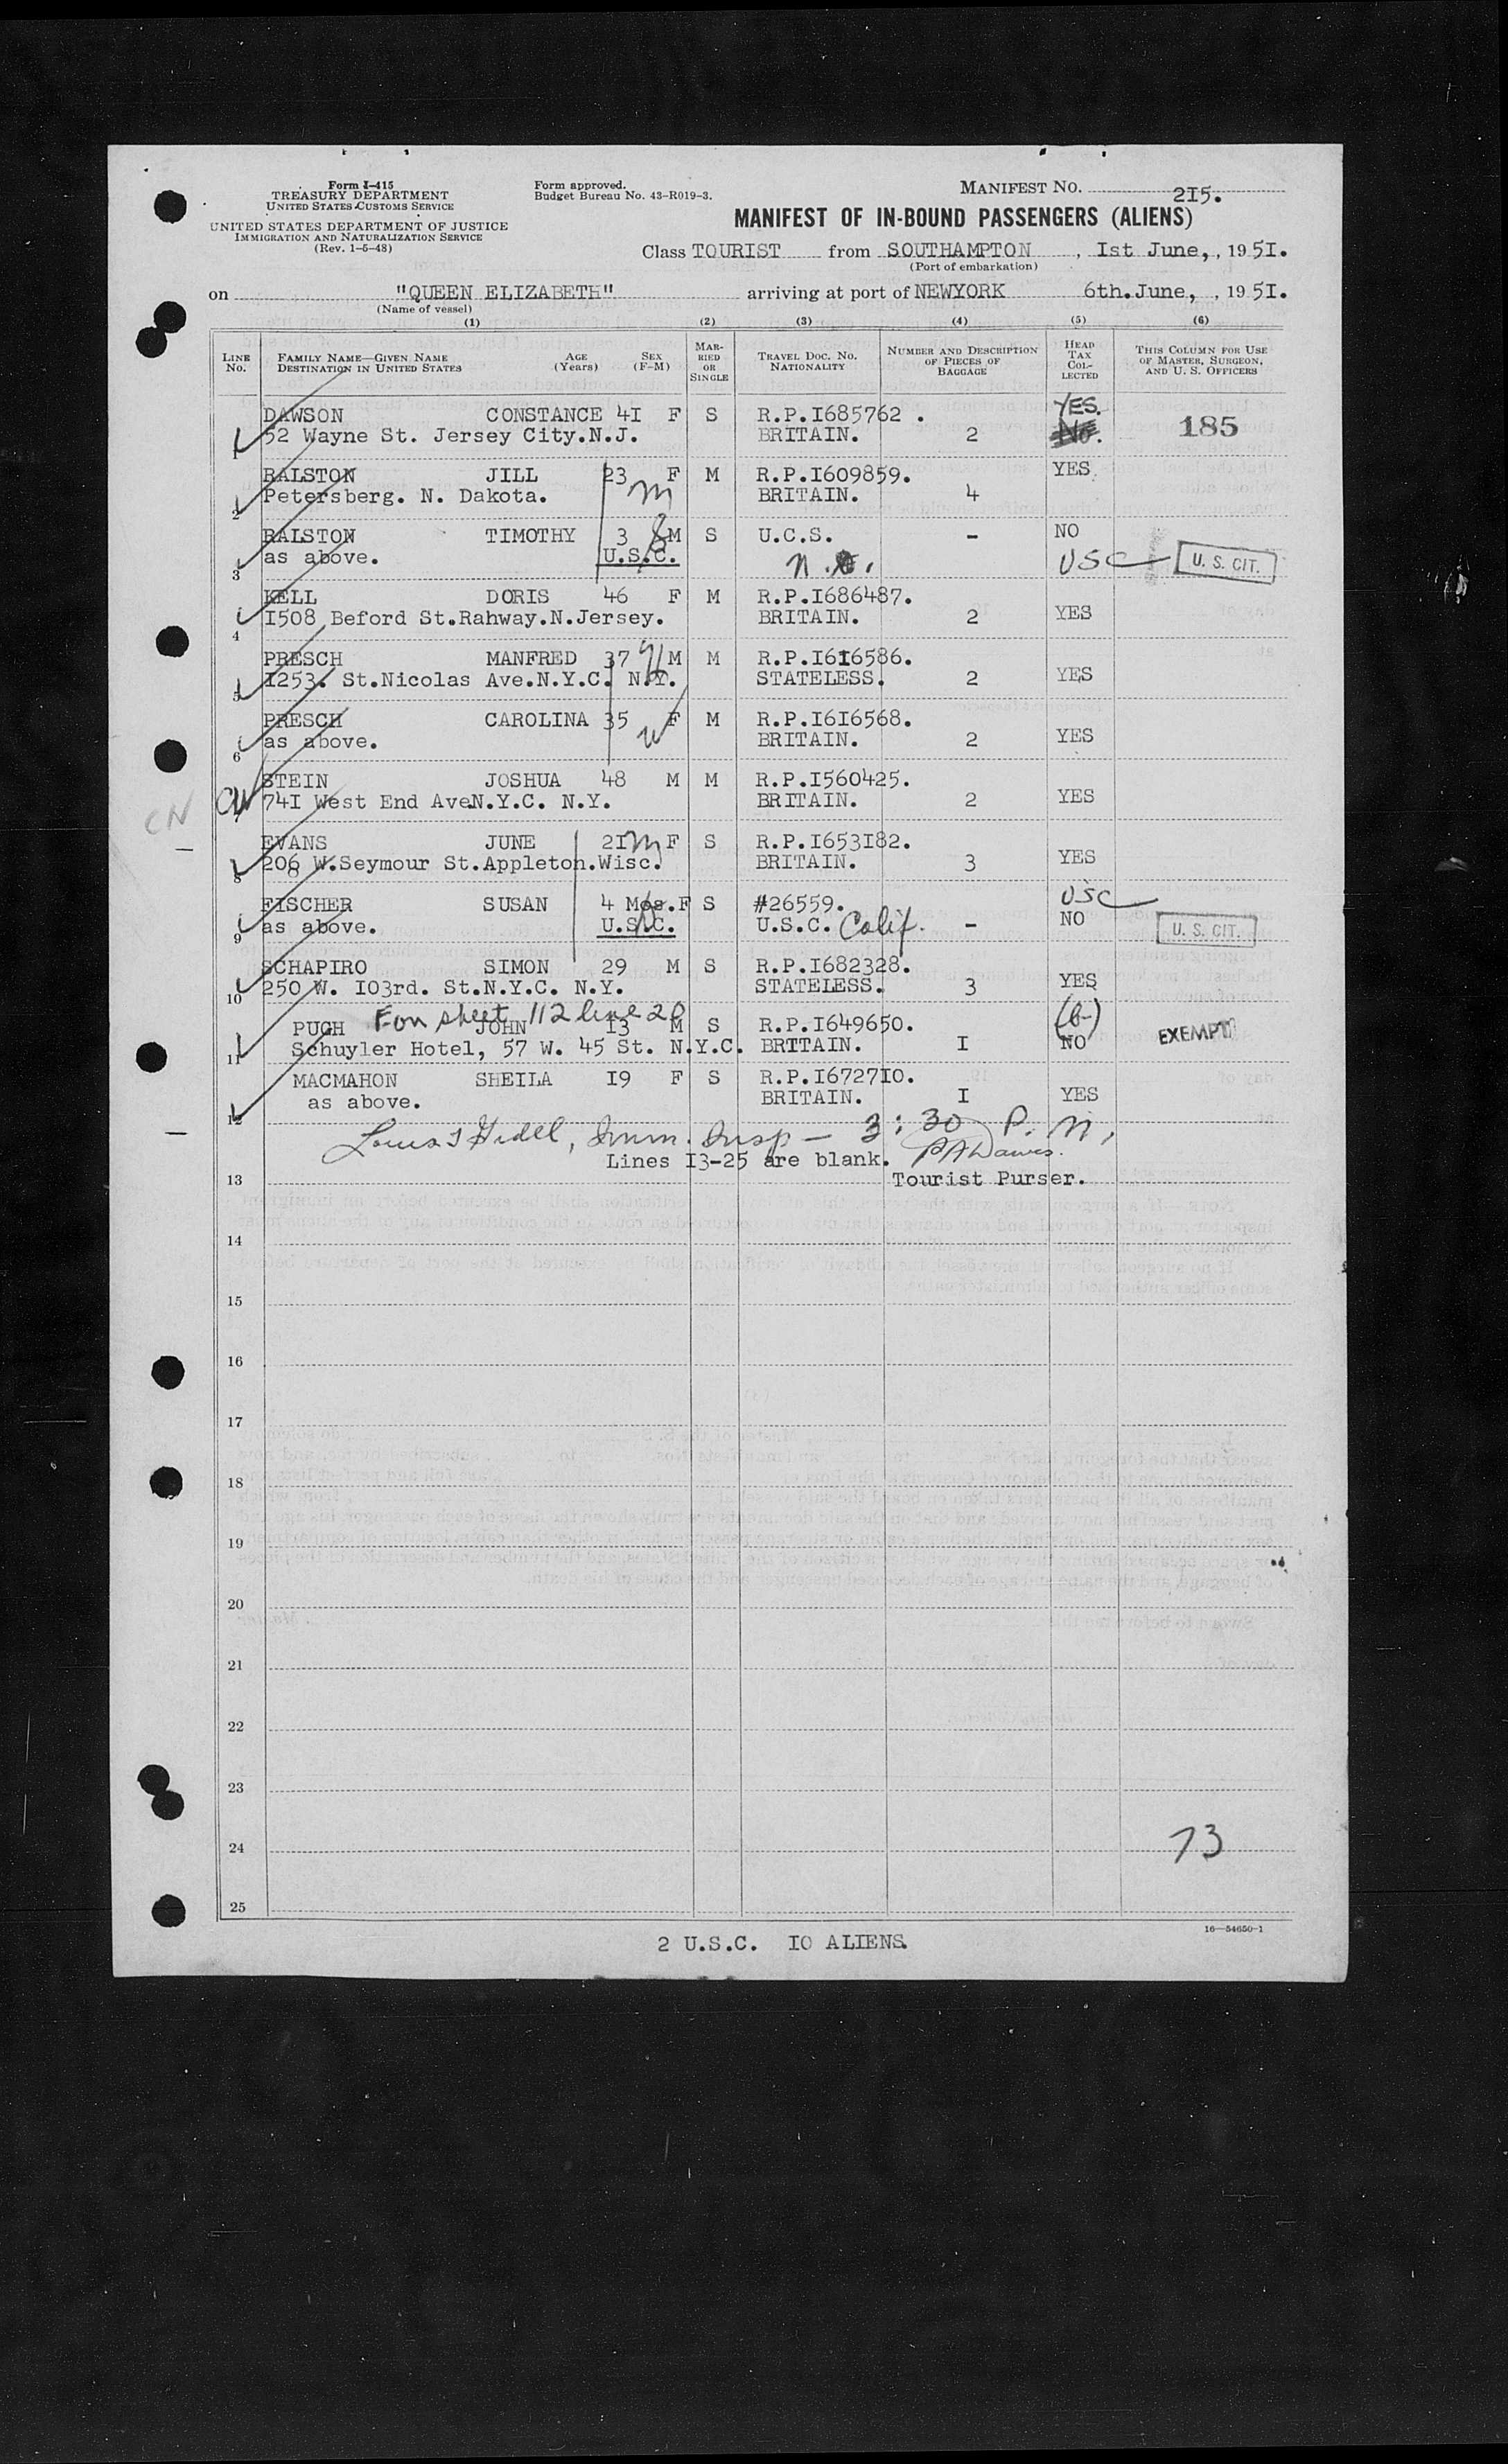 Form I-415
TREASURY DEPARTMENT
UNITED STATES CUSTOMS SERVICE
UNITED STATES DEPARTMENT OF JUSTICE
IMMIGRATION AND NATURALIZATION SERVICE
(Rev. 1-5-48)
Form approved.
Budget Bureau No. 43-R019-3.
MANIFEST NO. 2I5.
MANIFEST OF IN-BOUND PASSENGERS (ALIENS)
Class TOURIST from SOUTHAMPTON, Ist June,, 195I.
(Port of embarkation)
on "QUEEN ELIZABETH" arriving at port of NEWYORK 6th.June,, 195I.
(Name of vessel)
(1) (2) (3) (4) (5) (6)
LINE NO. FAMILY NAME—GIVEN NAME DESTINATION IN UNITED STATES AGE (Years) SEX (F-M) MARRIED OR SINGLE TRAVEL DOC. NO. NATIONALITY NUMBER AND DESCRIPTION OF PIECES OF BAGGAGE HEAD TAX COLLECTED THIS COLUMN FOR USE OF MASTER, SURGEON, AND U. S. OFFICERS
DAWSON CONSTANCE 4I F S R.P.I685762 . YES.
1 52 Wayne St. Jersey City.N.J. BRITAIN. 2 No. 185
RALSTON JILL 23 F M R.P.I609859. YES.
2 Petersberg. N. Dakota. m BRITAIN. 4
RALSTON TIMOTHY 3 M S U.C.S. - NO
3 as above. U.S.C. USC U. S. CIT.
KELL DORIS 46 F M R.P.I686487.
4 I508 Beford St.Rahway.N.Jersey. BRITAIN. 2 YES
PRESCH MANFRED 37 H M M R.P.I6I6586.
5 I253. St.Nicolas Ave.N.Y.C. N.Y. STATELESS. 2 YES
PRESCH CAROLINA 35 F M R.P.I6I6568.
6 as above. W BRITAIN. 2 YES
STEIN JOSHUA 48 M M R.P.I560425.
CN 74I West End AveN.Y.C. N.Y. BRITAIN. 2 YES
CN
EVANS JUNE 2I m F S R.P.I653I82.
8 206 W.Seymour St.Appleton.Wisc. BRITAIN. 3 YES
FISCHER SUSAN 4 Mos.F S #26559. USC
9 as above. U.S.C. U.S.C. Calif. - NO U. S. CIT.
SCHAPIRO SIMON 29 M S R.P.I682328.
10 250 W. I03rd. St.N.Y.C. N.Y. STATELESS. 3 YES
For sheet 112 line 20
PUGH JOHN I3 M S R.P.I649650. (6-)
11 Schuyler Hotel, 57 W. 45 St. N.Y.C. BRITAIN. I NO EXEMPT
MACMAHON SHEILA I9 F S R.P.I6727I0.
12 as above. BRITAIN. I YES
Imm. Insp — 3:30 P.M.
Lines I3-25 are blank.
13 Tourist Purser.
14
15
16
17
18
19
20
21
22
23
24 73
25
16—54650-1
2 U.S.C. IO ALIENS.